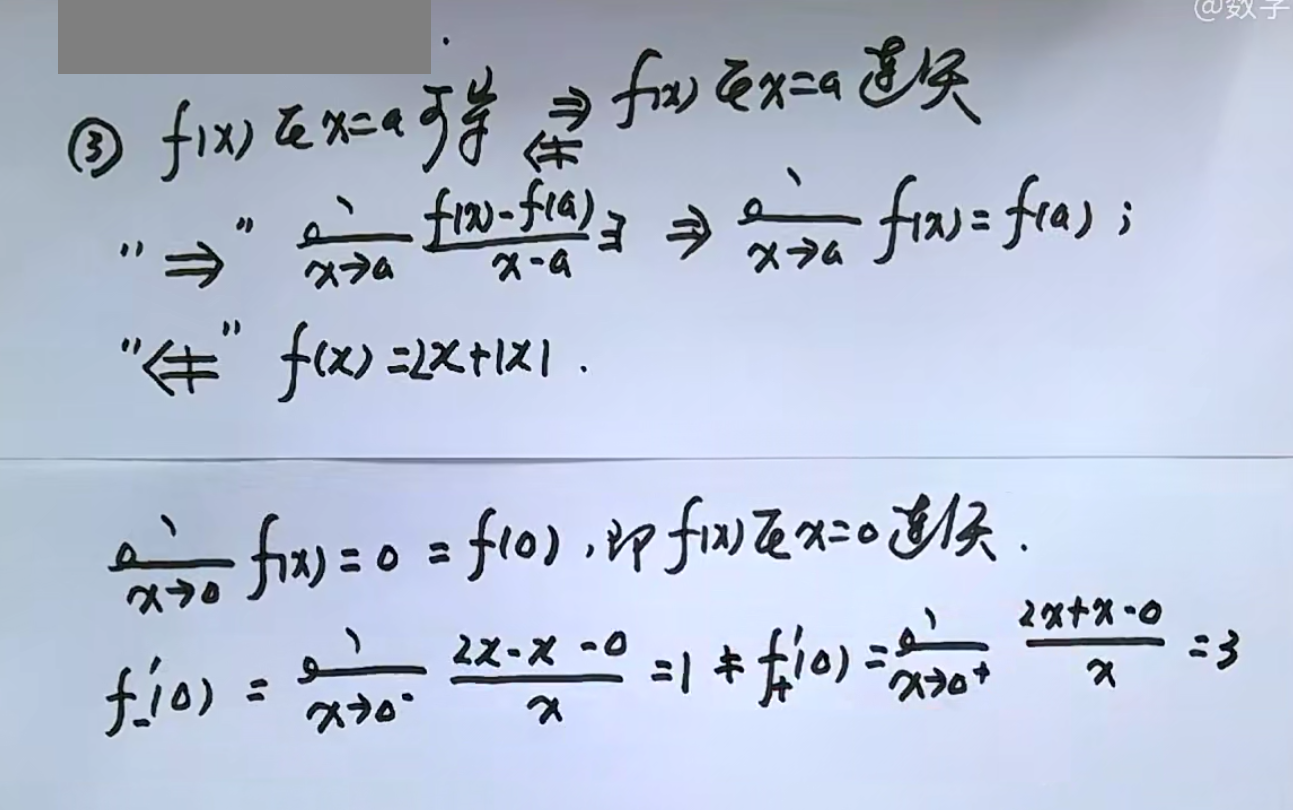 @数学
③ f(x) 在 x=a 可导 ⇒ ⇍ f(x) 在 x=a 连续
"⇒" lim x→a (f(x)-f(a))/(x-a) ∃ ⇒ lim x→a f(x)=f(a);
"⇍" f(x)=2x+|x|.
lim x→0 f(x)=0=f(0),即 f(x) 在 x=0 连续.
f₋'(0) = lim x→0⁻ (2x-x-0)/x =1 ≠ f₊'(0) = lim x→0⁺ (2x+x-0)/x =3